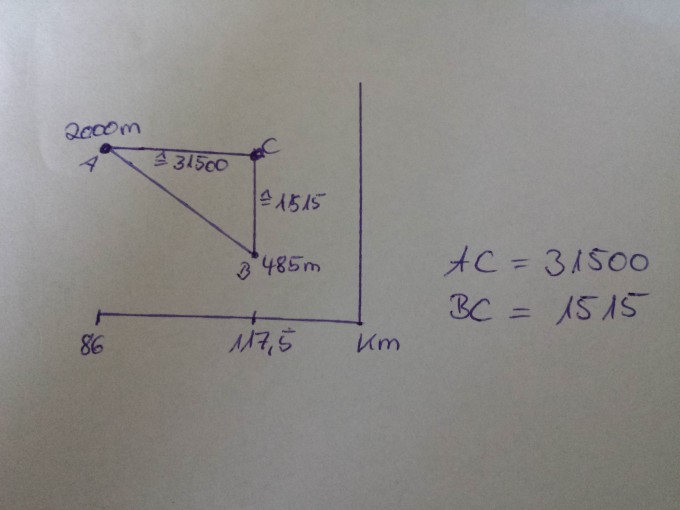 2000m
A
C
≙ 31500
≙ 1515
B 485m
AC = 31500
BC = 1515
86
117,5
Km